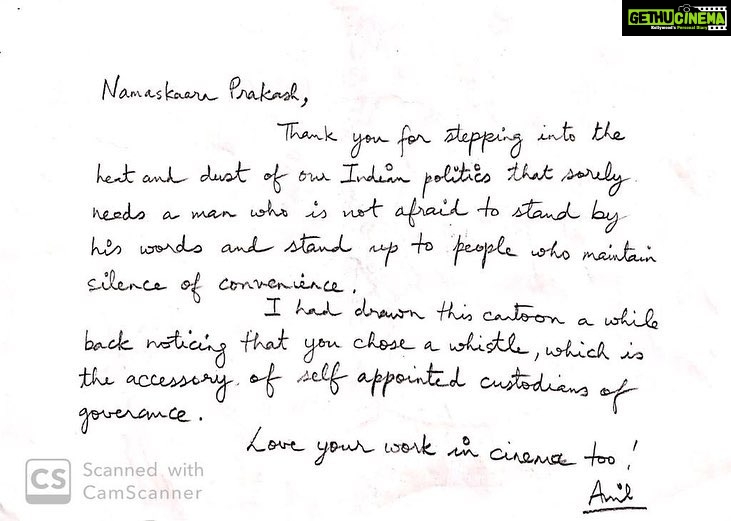 GETHUCINEMA
Kollywood's Personal Diary
Namaskaara Prakash,
Thank you for stepping into the
heat and dust of our Indian politics that sorely
needs a man who is not afraid to stand by
his words and stand up to people who maintain
silence of convenience.
I had drawn this cartoon a while
back noticing that you chose a whistle, which is
the accessory of self appointed custodians of
goverance.
Love your work in cinema too!
Anil
CS Scanned with
CamScanner